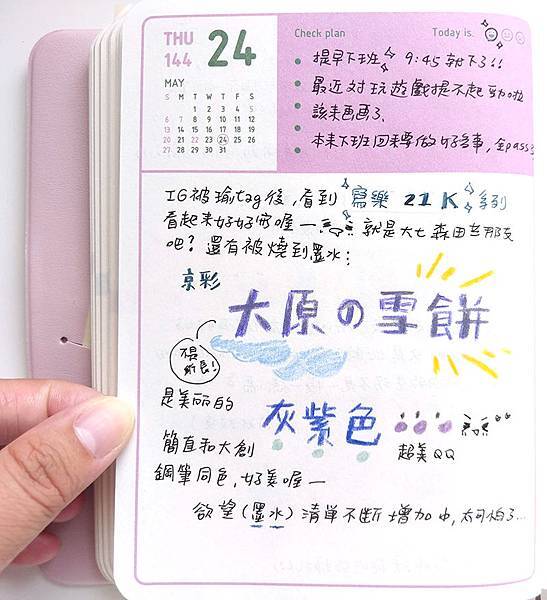 THU
144
24
MAY
S M T W T F S
1 2 3 4 5
6 7 8 9 10 11 12
13 14 15 16 17 18 19
20 21 22 23 24 25 26
27 28 29 30 31
Check plan
Today is.
提早下班 9:45 就下了!!
最近對玩遊戲提不起勁啦
該來畫畫了、
本來下班回來要做好多事,全pass
IG被瑜tag後,看到 寫樂 21K 系列
看起來好好寫喔一 就是大七森田 那支
吧?還有被燒到墨水:
京彩
大原の雪餅
是美丽的
灰紫色
超美QQ
簡直和大創
鋼筆同色,好美喔一
欲望(墨水)清單不斷增加中,太可怕了...